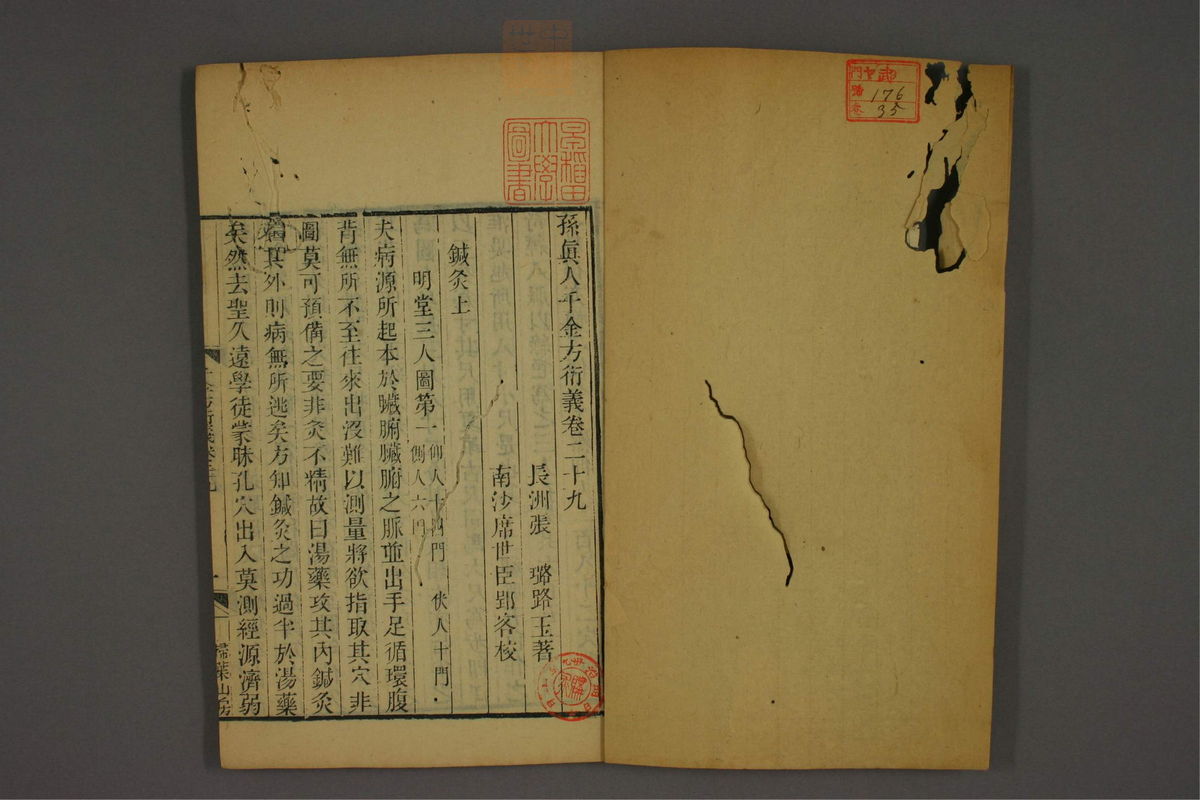 門 ヤ 9
號 176
卷 35
早稲田
大學
圖書
孫眞人千金方衍義卷二十九
長洲張　璐路玉著
南沙席世臣郢客校
鍼灸上
明堂三人圖第一仰人十四門　伏人十門
側人六門
夫病源所起本於臟腑臟腑之脈並出手足循環腹
背無所不至往來出沒難以測量將欲指取其穴非
圖莫可預備之要非灸不精故曰湯藥攻其内鍼灸
攻其外則病無所逃矣方知鍼灸之功過半於湯藥
矣然去聖久遠學徒蒙昧孔穴出入莫測經源濟弱
千金方衍義卷二十九
一
掃葉山房